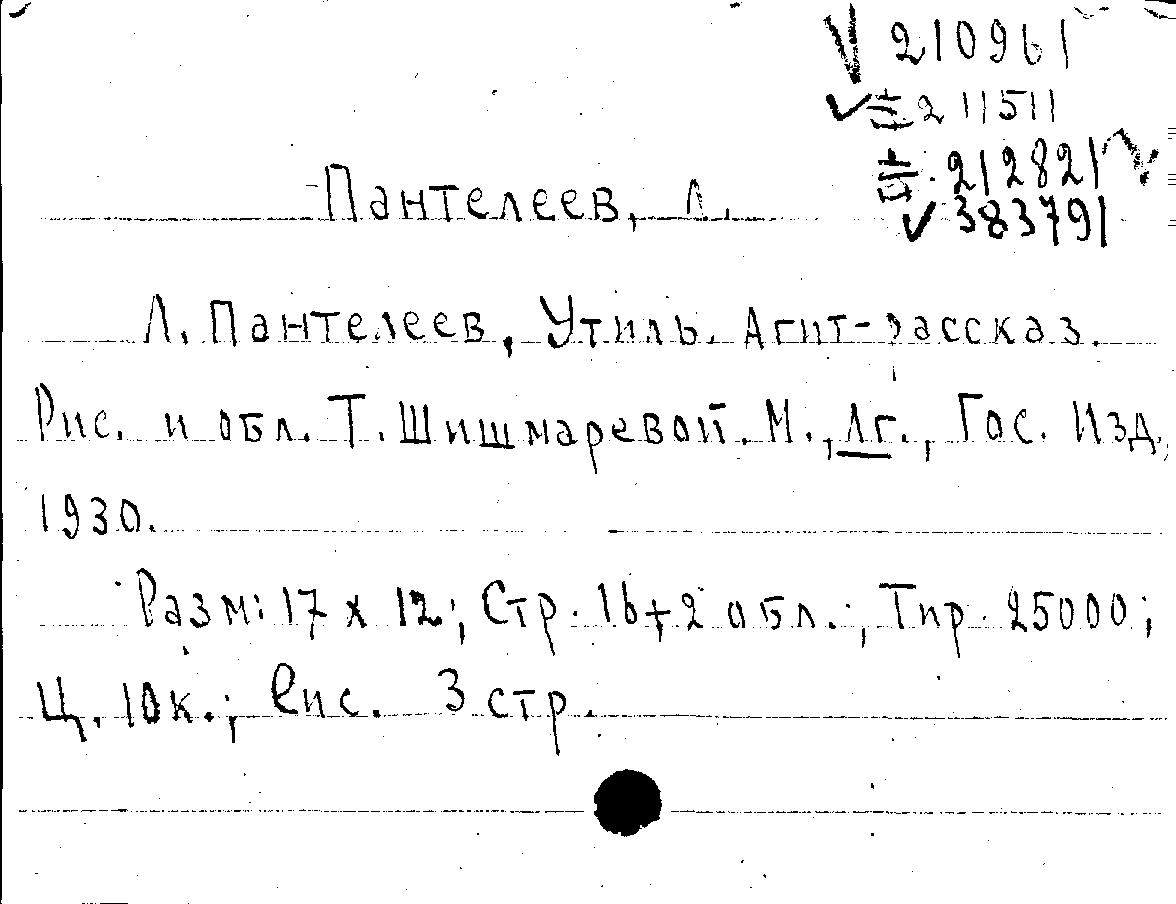 210961
211511
212821
383791
Пантелеев, Л.
Л. Пантелеев, Утиль. Агит-рассказ.
Рис. и обл. Т. Шишмаревой. М., Лг., Гос. Изд.,
1930.
Разм: 17 x 12; Стр. 16+2 обл.; Тир. 25000;
Ц. 10к.; Рис. 3 стр.